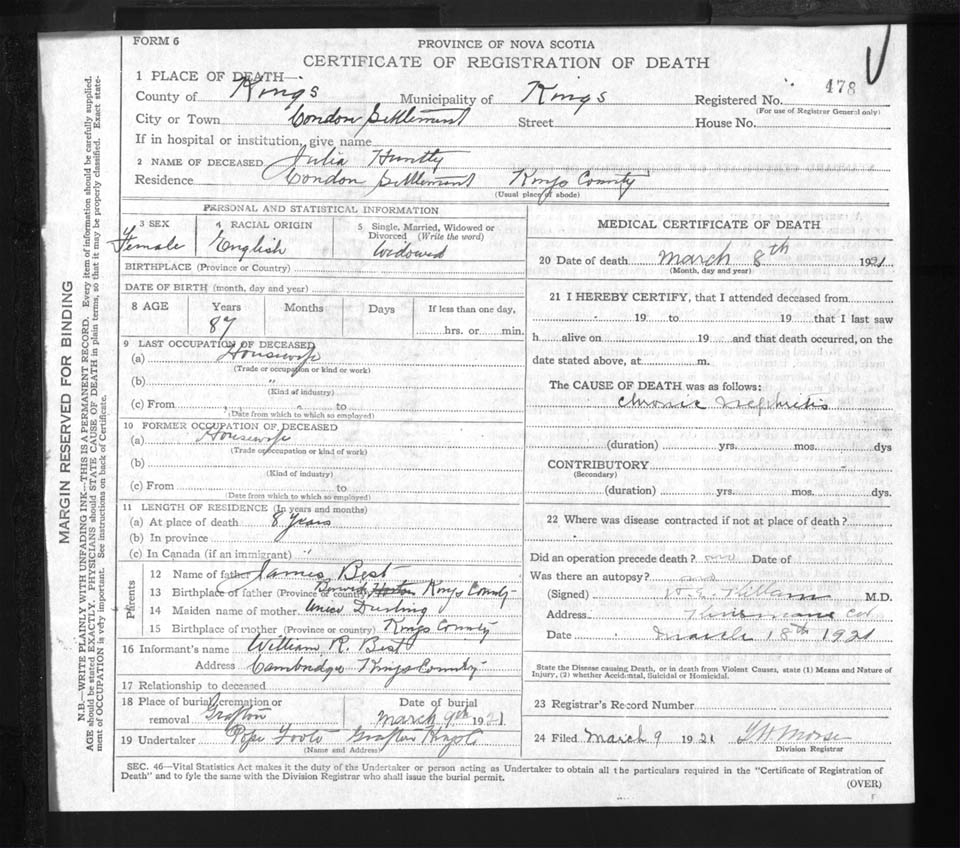 FORM 6
PROVINCE OF NOVA SCOTIA
CERTIFICATE OF REGISTRATION OF DEATH
1 PLACE OF DEATH—
County of Kings Municipality of Kings Registered No. 478
(For use of Registrar General only)
City or Town Condon Settlement Street House No.
If in hospital or institution, give name
2 NAME OF DECEASED Julia Huntly
Residence Condon Settlement Kings County
(Usual place of abode)
PERSONAL AND STATISTICAL INFORMATION
3 SEX Female
4 RACIAL ORIGIN English
5 Single, Married, Widowed or Divorced (Write the word)
Widowed
BIRTHPLACE (Province or Country)
DATE OF BIRTH (month, day and year)
8 AGE Years Months Days If less than one day,
87 hrs. or min.
9 LAST OCCUPATION OF DECEASED
(a) Housewife
(Trade or occupation or kind or work)
(b) "
(Kind of industry)
(c) From to
(Date from which to which so employed)
10 FORMER OCCUPATION OF DECEASED
(a) Housewife
(Trade or occupation or kind of work)
(b)
(Kind of industry)
(c) From to
(Date from which to which so employed)
11 LENGTH OF RESIDENCE (In years and months)
(a) At place of death 8 Years
(b) In province
(c) In Canada (if an immigrant) "
Parents
12 Name of father James Best
13 Birthplace of father (Province or country) Horton Kings County
14 Maiden name of mother
15 Birthplace of mother (Province or country) Kings County
16 Informant's name William R. Best
Address Cambridge Kings County
17 Relationship to deceased
18 Place of burial, cremation or removal Grafton
Date of burial March 9th 1921
19 Undertaker Pope Foote Grafton Kings Co
(Name and Address)
MEDICAL CERTIFICATE OF DEATH
20 Date of death March 8th 1921
(Month, day and year)
21 I HEREBY CERTIFY, that I attended deceased from
19 to 19 that I last saw
h alive on 19 and that death occurred, on the
date stated above, at m.
The CAUSE OF DEATH was as follows:
Chronic Nephritis
(duration) yrs. mos. dys
CONTRIBUTORY
(Secondary)
(duration) yrs. mos. dys.
22 Where was disease contracted if not at place of death?
Did an operation precede death? no Date of
Was there an autopsy? no
(Signed) M.D.
Address
Date March 18th 1921
State the Disease causing Death, or in death from Violent Causes, state (1) Means and Nature of
Injury, (2) whether Accidental, Suicidal or Homicidal.
23 Registrar's Record Number
24 Filed March 9 1921 Morse
Division Registrar
SEC. 46—Vital Statistics Act makes it the duty of the Undertaker or person acting as Undertaker to obtain all the particulars required in the "Certificate of Registration of
Death" and to fyle the same with the Division Registrar who shall issue the burial permit.
(OVER)
MARGIN RESERVED FOR BINDING
N.B.—WRITE PLAINLY WITH UNFADING INK—THIS IS A PERMANENT RECORD. Every item of information should be carefully supplied.
AGE should be stated EXACTLY. PHYSICIANS should STATE CAUSE OF DEATH in plain terms, so that it may be properly classified. Exact state-
ment of OCCUPATION is very important. See instructions on back of Certificate.